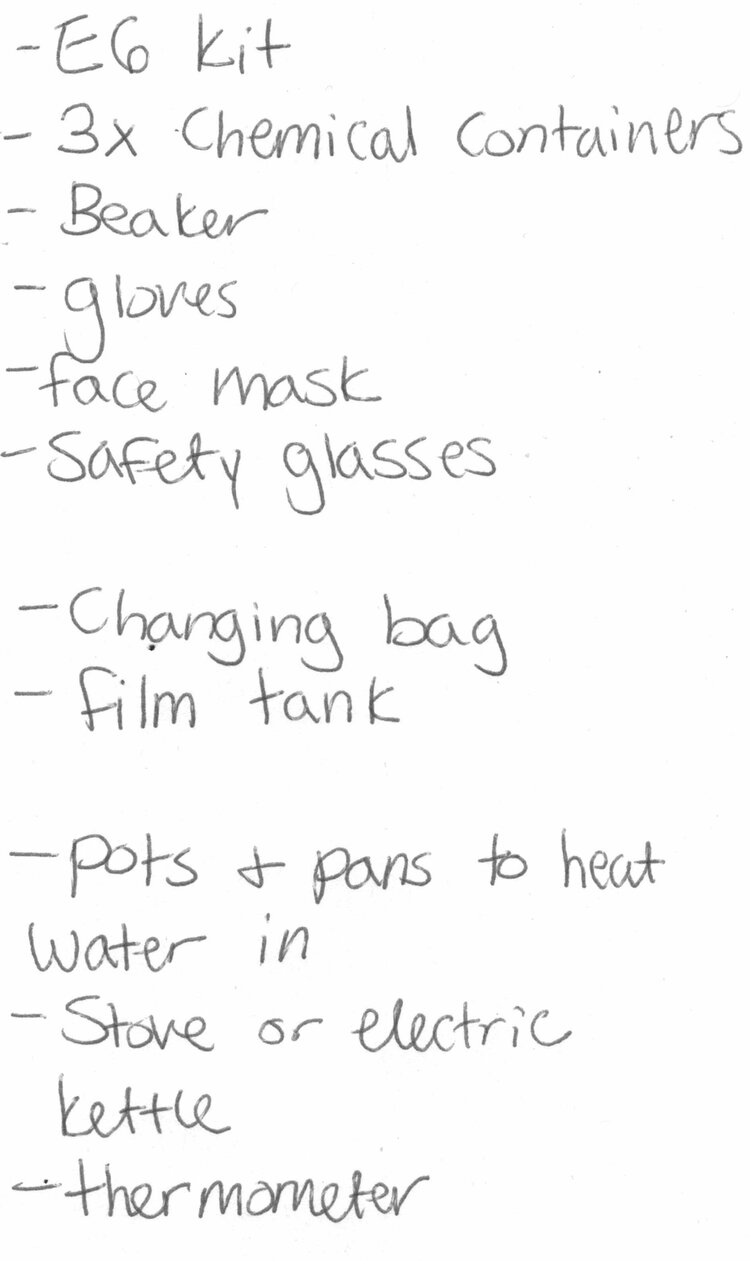 - E6 kit
- 3x Chemical Containers
- Beaker
- gloves
- face mask
- Safety glasses
- Changing bag
- film tank
- pots + pans to heat
water in
- Stove or electric
kettle
- thermometer